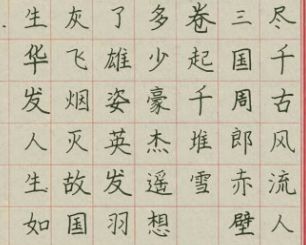 尽千古风流人
三国周郎赤壁
卷起千堆雪
多少豪杰遥想
了雄姿英发羽
灰飞烟灭故国
生华发人生如